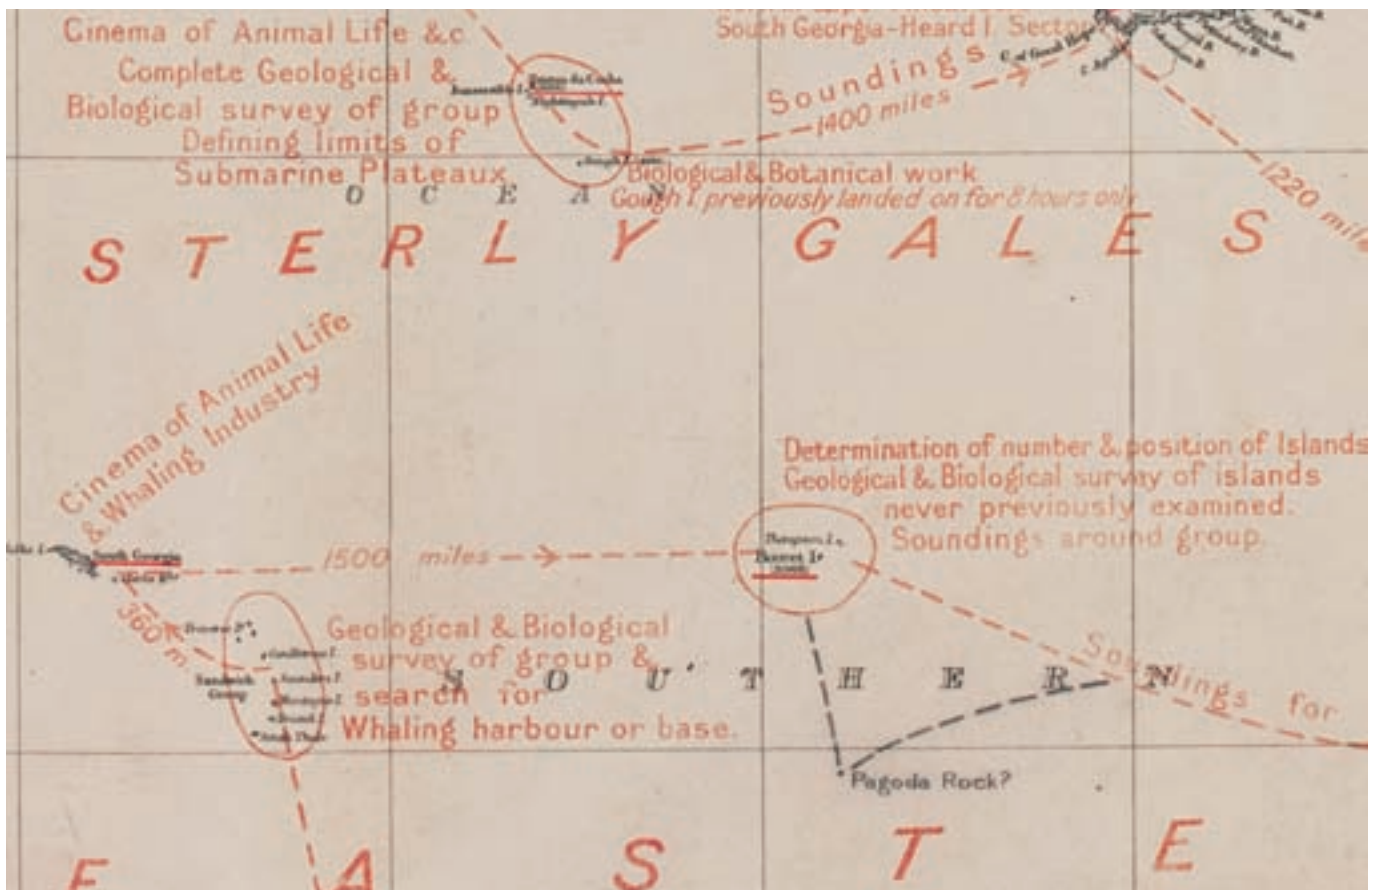 Cinema of Animal Life &c
Complete Geological &
Biological survey of group
Defining limits of
Submarine Plateaux
South Georgia-Heard I. Sector
Soundings
1400 miles
C. of Good Hope
1220 mile
Biological & Botanical work
Gough I. previously landed on for 8 hours only
OCEAN
STERLY GALES
Cinema of Animal Life
& Whaling Industry
South Georgia
1500 miles
360 m
Determination of number & position of Islands
Geological & Biological survey of islands
never previously examined.
Soundings around group.
Thompson I.
Bouvet I.
Geological & Biological
survey of group &
search for
Whaling harbour or base.
Sandwich
Group
Saunders I.
SOUTHERN
Soundings for
Pagoda Rock?
EASTE